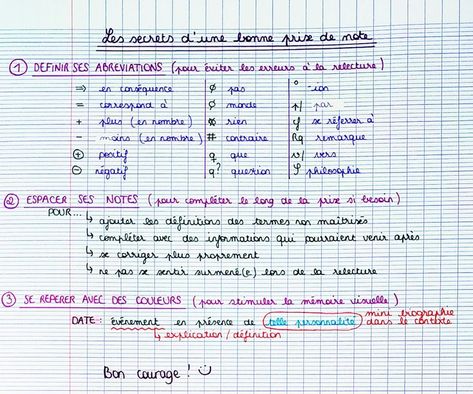 Les secrets d'une bonne prise de note
① DEFINIR SES ABREVIATIONS (pour éviter les erreurs à la relecture)
⇒ en conséquence
= correspond à
+ plus (en nombre)
- moins (en nombre)
⊕ positif
⊖ négatif
∅ pas
∅ monde
∅ rien
# contraire
q que
q? question
° -ion
p/ par
cf se référer à
Rq remarque
v/ vers
φ philosophie
② ESPACER SES NOTES (pour compléter le long de la prise si besoin)
POUR...
↳ ajouter les définitions des termes non maîtrisés
↳ compléter avec des informations qui pourraient venir après
↳ se corriger plus proprement
↳ ne pas se sentir surmené(e) lors de la relecture
③ SE REPERER AVEC DES COULEURS (pour stimuler la mémoire visuelle)
DATE : évènement en présence de telle personnalité mini biographie dans le contexte
↳ explication / définition
Bon courage !